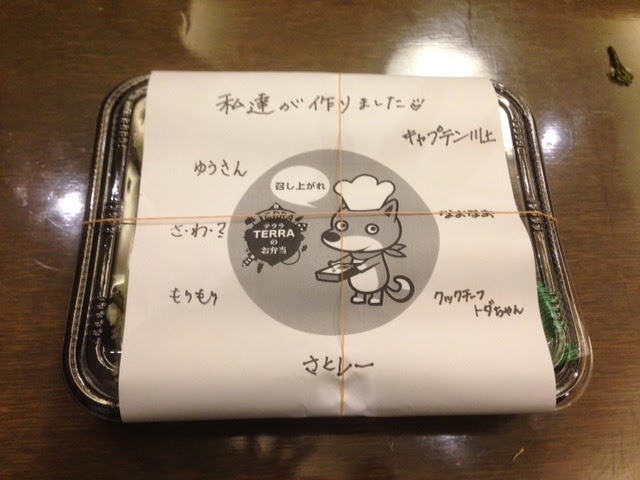 私達が作りました
キャプテン川上
ゆうさん
召し上がれ
なおなお
さ・わ・こ
テララ
TERRA
の
お弁当
もりもり
クックチーフ
トダちゃん
さとしー